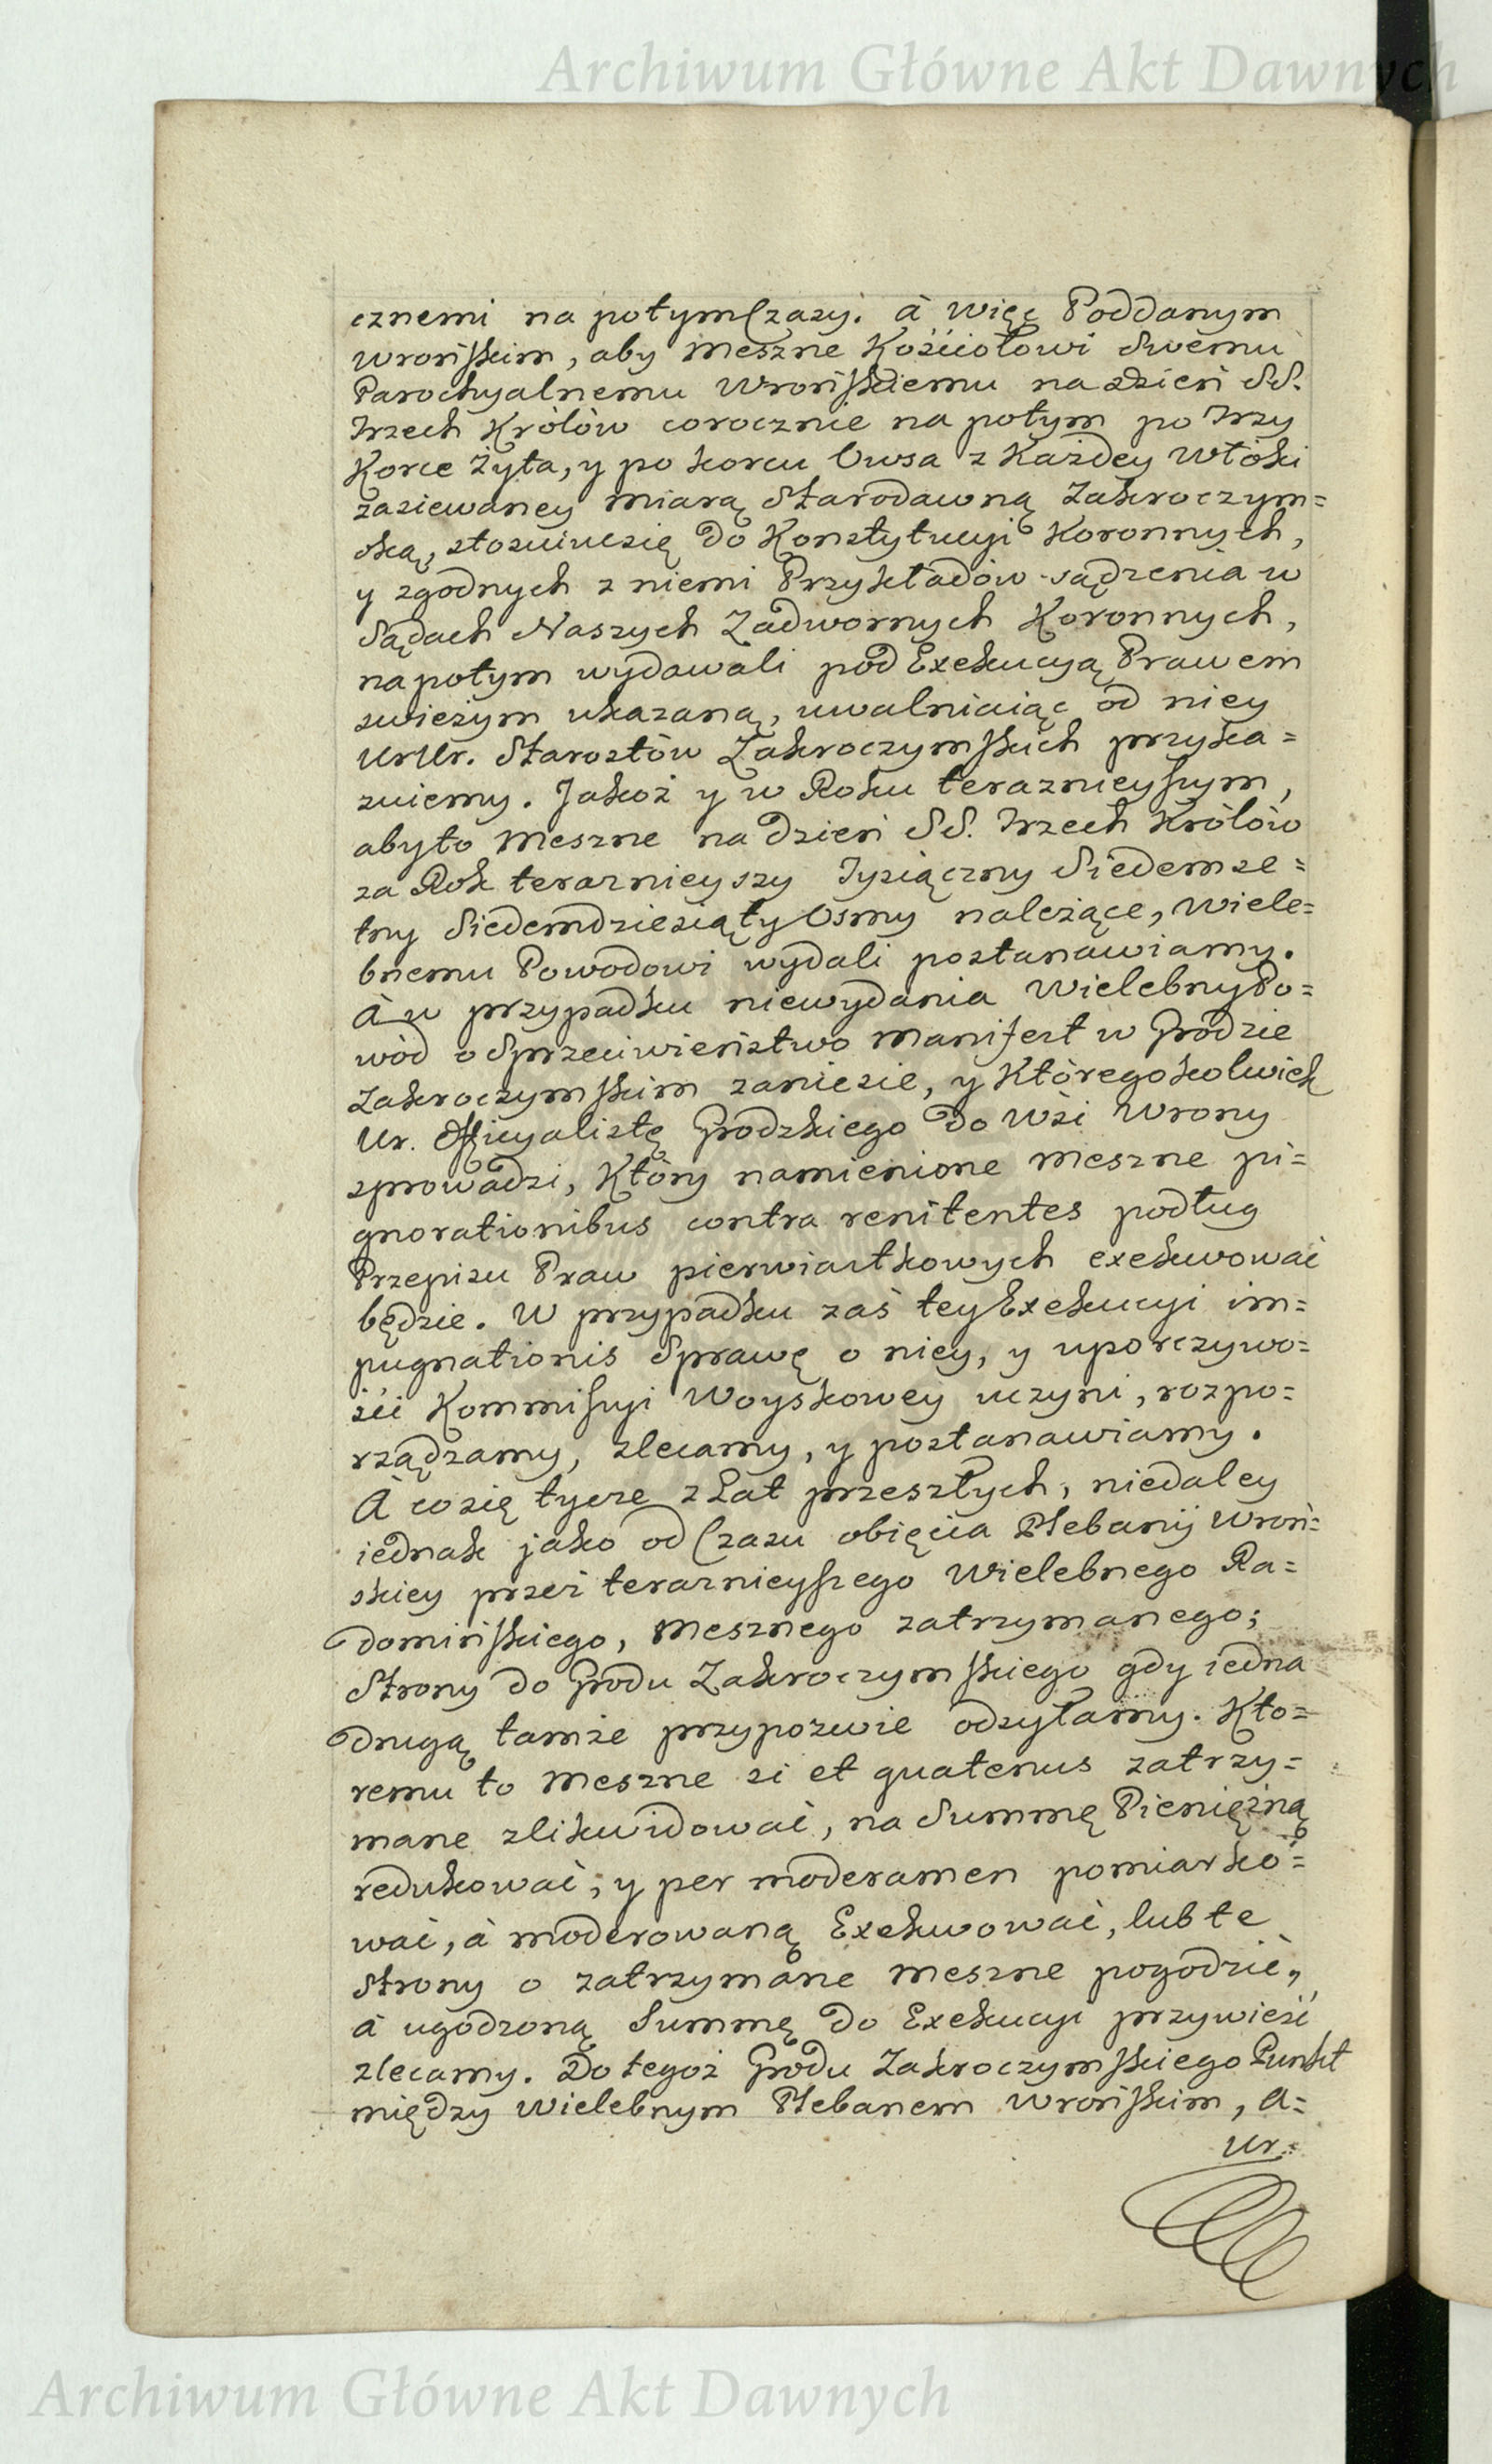 Archiwum Główne Akt Dawnych
cznemi na potym Czasy. à więc Poddanym
Wrońskim, aby Meszne Kościołowi Swemu
Parochyalnemu Wrońskiemu na dzień SS.
Trzech Królów corocznie na potym po Trzy
Korce Żyta, y po korcu Owsa z Każdey Włóki
zasiewaney Miarą Starodawną Zakroczym=
ską, stosuiuc się do Konstytucyi Koronnych,
y zgodnych z niemi Przykładów sądzenia w
Sądach Naszych Zadwornych Koronnych,
na potym wydawali pod Exekucyą Prawem
swieżym ukazaną, uwalniaiąc od niey
UrUr. Starostów Zakroczymskich przyka=
zuiemy. Jakoż y w Roku teraznieyszym,
aby to Meszne na dzień SS. Trzech Królów
za Rok teraznieyszy Tysiączny Siedemse=
tny Siedemdziesiąty Osmy należące, Wiele=
bnemu Powodowi wydali postanawiamy.
À w przypadku niewydania Wielebny Po=
wód o Sprzeciwieństwo Manifest w Grodzie
Zakroczymskim zaniesie, y Któregokolwiek
Ur. Officyalistę Grodzkiego do Wsi Wrony
sprowadzi, Który namienione Meszne pi=
gnorationibus contra renitentes podług
Przepisu Praw pierwiastkowych exekwować
będzie. W przypadku zaś tey Exekucyi im=
pugnationis Sprawę o niey, y uporczywo=
ści Kommissyi Woyskowey uczyni, rozpo=
rządzamy, zlecamy, y postanawiamy.
À co się tycze z Lat przeszłych, niedaley
iednak jako od Czasu obięcia Plebanij Wroń=
skiey przez teraznieyszego Wielebnego Ra=
domińskiego, Mesznego zatrzymanego;
Strony do Grodu Zakroczymskiego gdy iedna
drugą tamże przypozwie odsyłamy. Kto=
remu to Meszne si et quatenus zatrzy=
mane zlikwidować, na Summę Pieniężną
redukować, y per moderamen pomiarko=
wać, à moderowaną Exekwować, lub te
Strony o zatrzymane Meszne pogodzić,
à ugodzoną Summę do Exekucyi przywieść
zlecamy. Do tegoż Grodu Zakroczymskiego Punkt
między Wielebnym Plebanem Wrońskim, a=
Ur.
Archiwum Główne Akt Dawnych